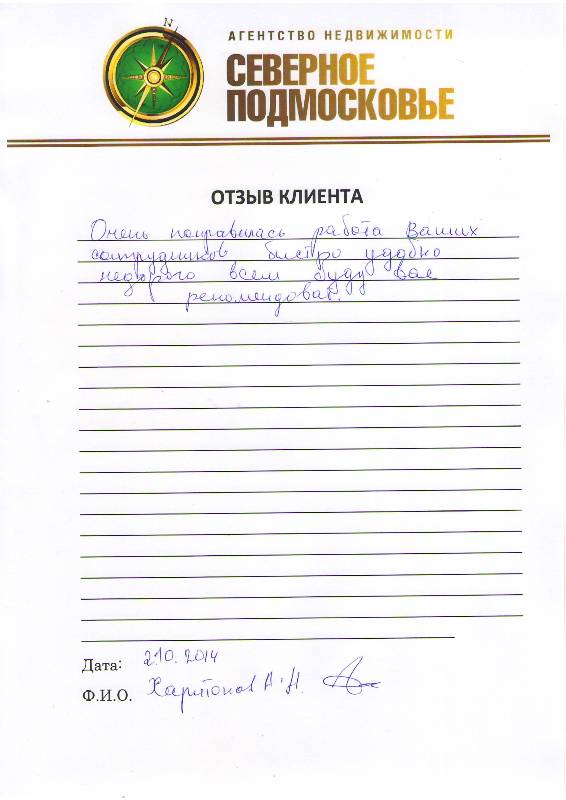 N
АГЕНТСТВО НЕДВИЖИМОСТИ
СЕВЕРНОЕ
ПОДМОСКОВЬЕ
ОТЗЫВ КЛИЕНТА
Очень понравилась работа Ваших
сотрудников быстро удобно
недорого всем буду вас
рекомендовать.
Дата: 2.10.2014
Ф.И.О. Харитонов А.Н.